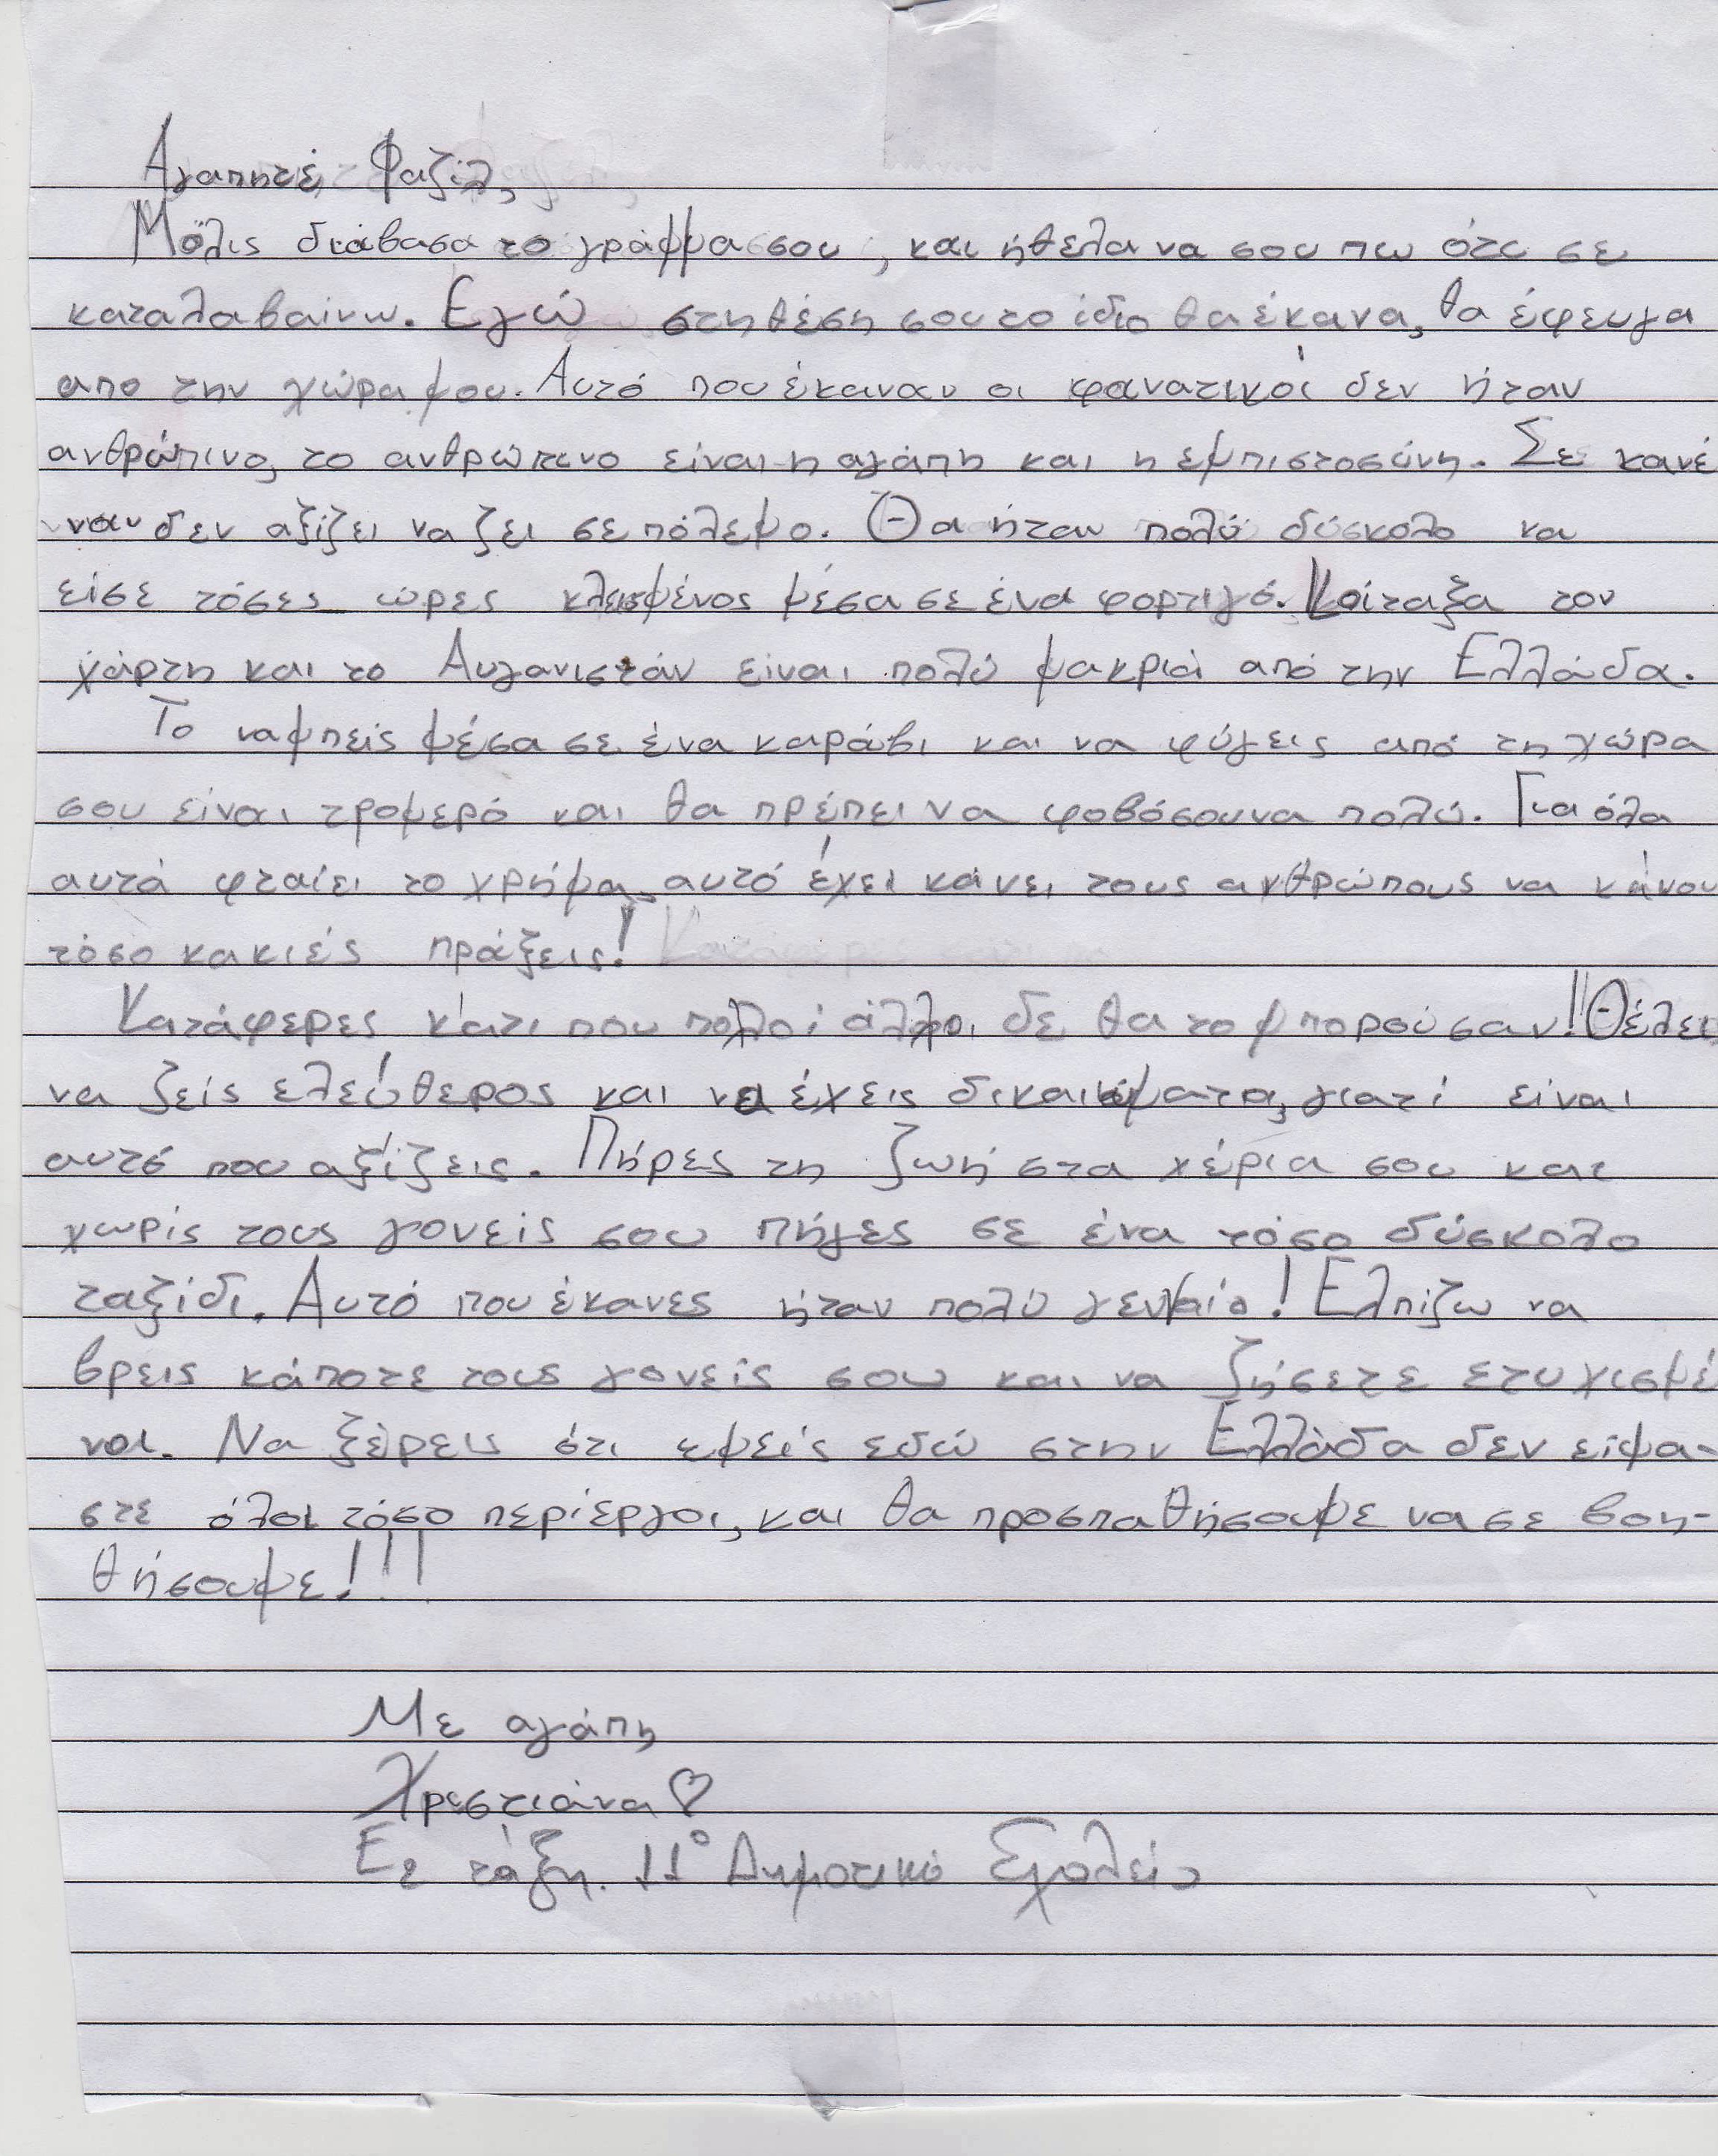 Αγαπητέ Φαζίλ,
Μόλις διάβασα το γράμμα σου, και ήθελα να σου πω ότι σε
καταλαβαίνω. Εγώ στη θέση σου το ίδιο θα έκανα, θα έφευγα
απο την χώρα μου. Αυτό που έκαναν οι φανατικοί δεν ήταν
ανθρώπινο, το ανθρώπινο είναι η αγάπη και η εμπιστοσύνη. Σε κανέ
ναν δεν αξίζει να ζει σε πόλεμο. Θα ήταν πολύ δύσκολο να
είσε τόσες ώρες κλεισμένος μέσα σε ένα φορτιγό. Κοίταξα τον
χάρτη και το Αυγανιστάν είναι πολύ μακριά από την Ελλάδα.
Το να μπείς μέσα σε ένα καράβι και να φύγεις από τη χώρα
σου είναι τρομερό και θα πρέπει να φοβόσουνα πολύ. Για όλα
αυτά φταίει το χρήμα, αυτό έχει κάνει τους ανθρώπους να κάνου
τόσο κακιές πράξεις!
Κατάφερες κάτι που πολλοί άλλοι δε θα το μπορούσαν!! Θέλει
να ζείς ελεύθερος και να έχεις δικαιώματα, γιατί είναι
αυτό που αξίζεις. Πήρες τη ζωή στα χέρια σου και
χωρίς τους γονείς σου πήγες σε ένα τόσο δύσκολο
ταξίδι. Αυτό που έκανες ήταν πολύ γενναίο! Ελπίζω να
βρεις κάποτε τους γονείς σου και να ζήσετε ετυχισμέ
νοι. Να ξέρεις ότι εμείς εδώ στην Ελλάδα δεν είμα-
στε όλοι τόσο περίεργοι, και θα προσπαθήσουμε να σε βοη-
θήσουμε!!!
Με αγάπη
Χρστιάνα♡
Ε2 τάξη. 11° Δημοτικό Σχολείο